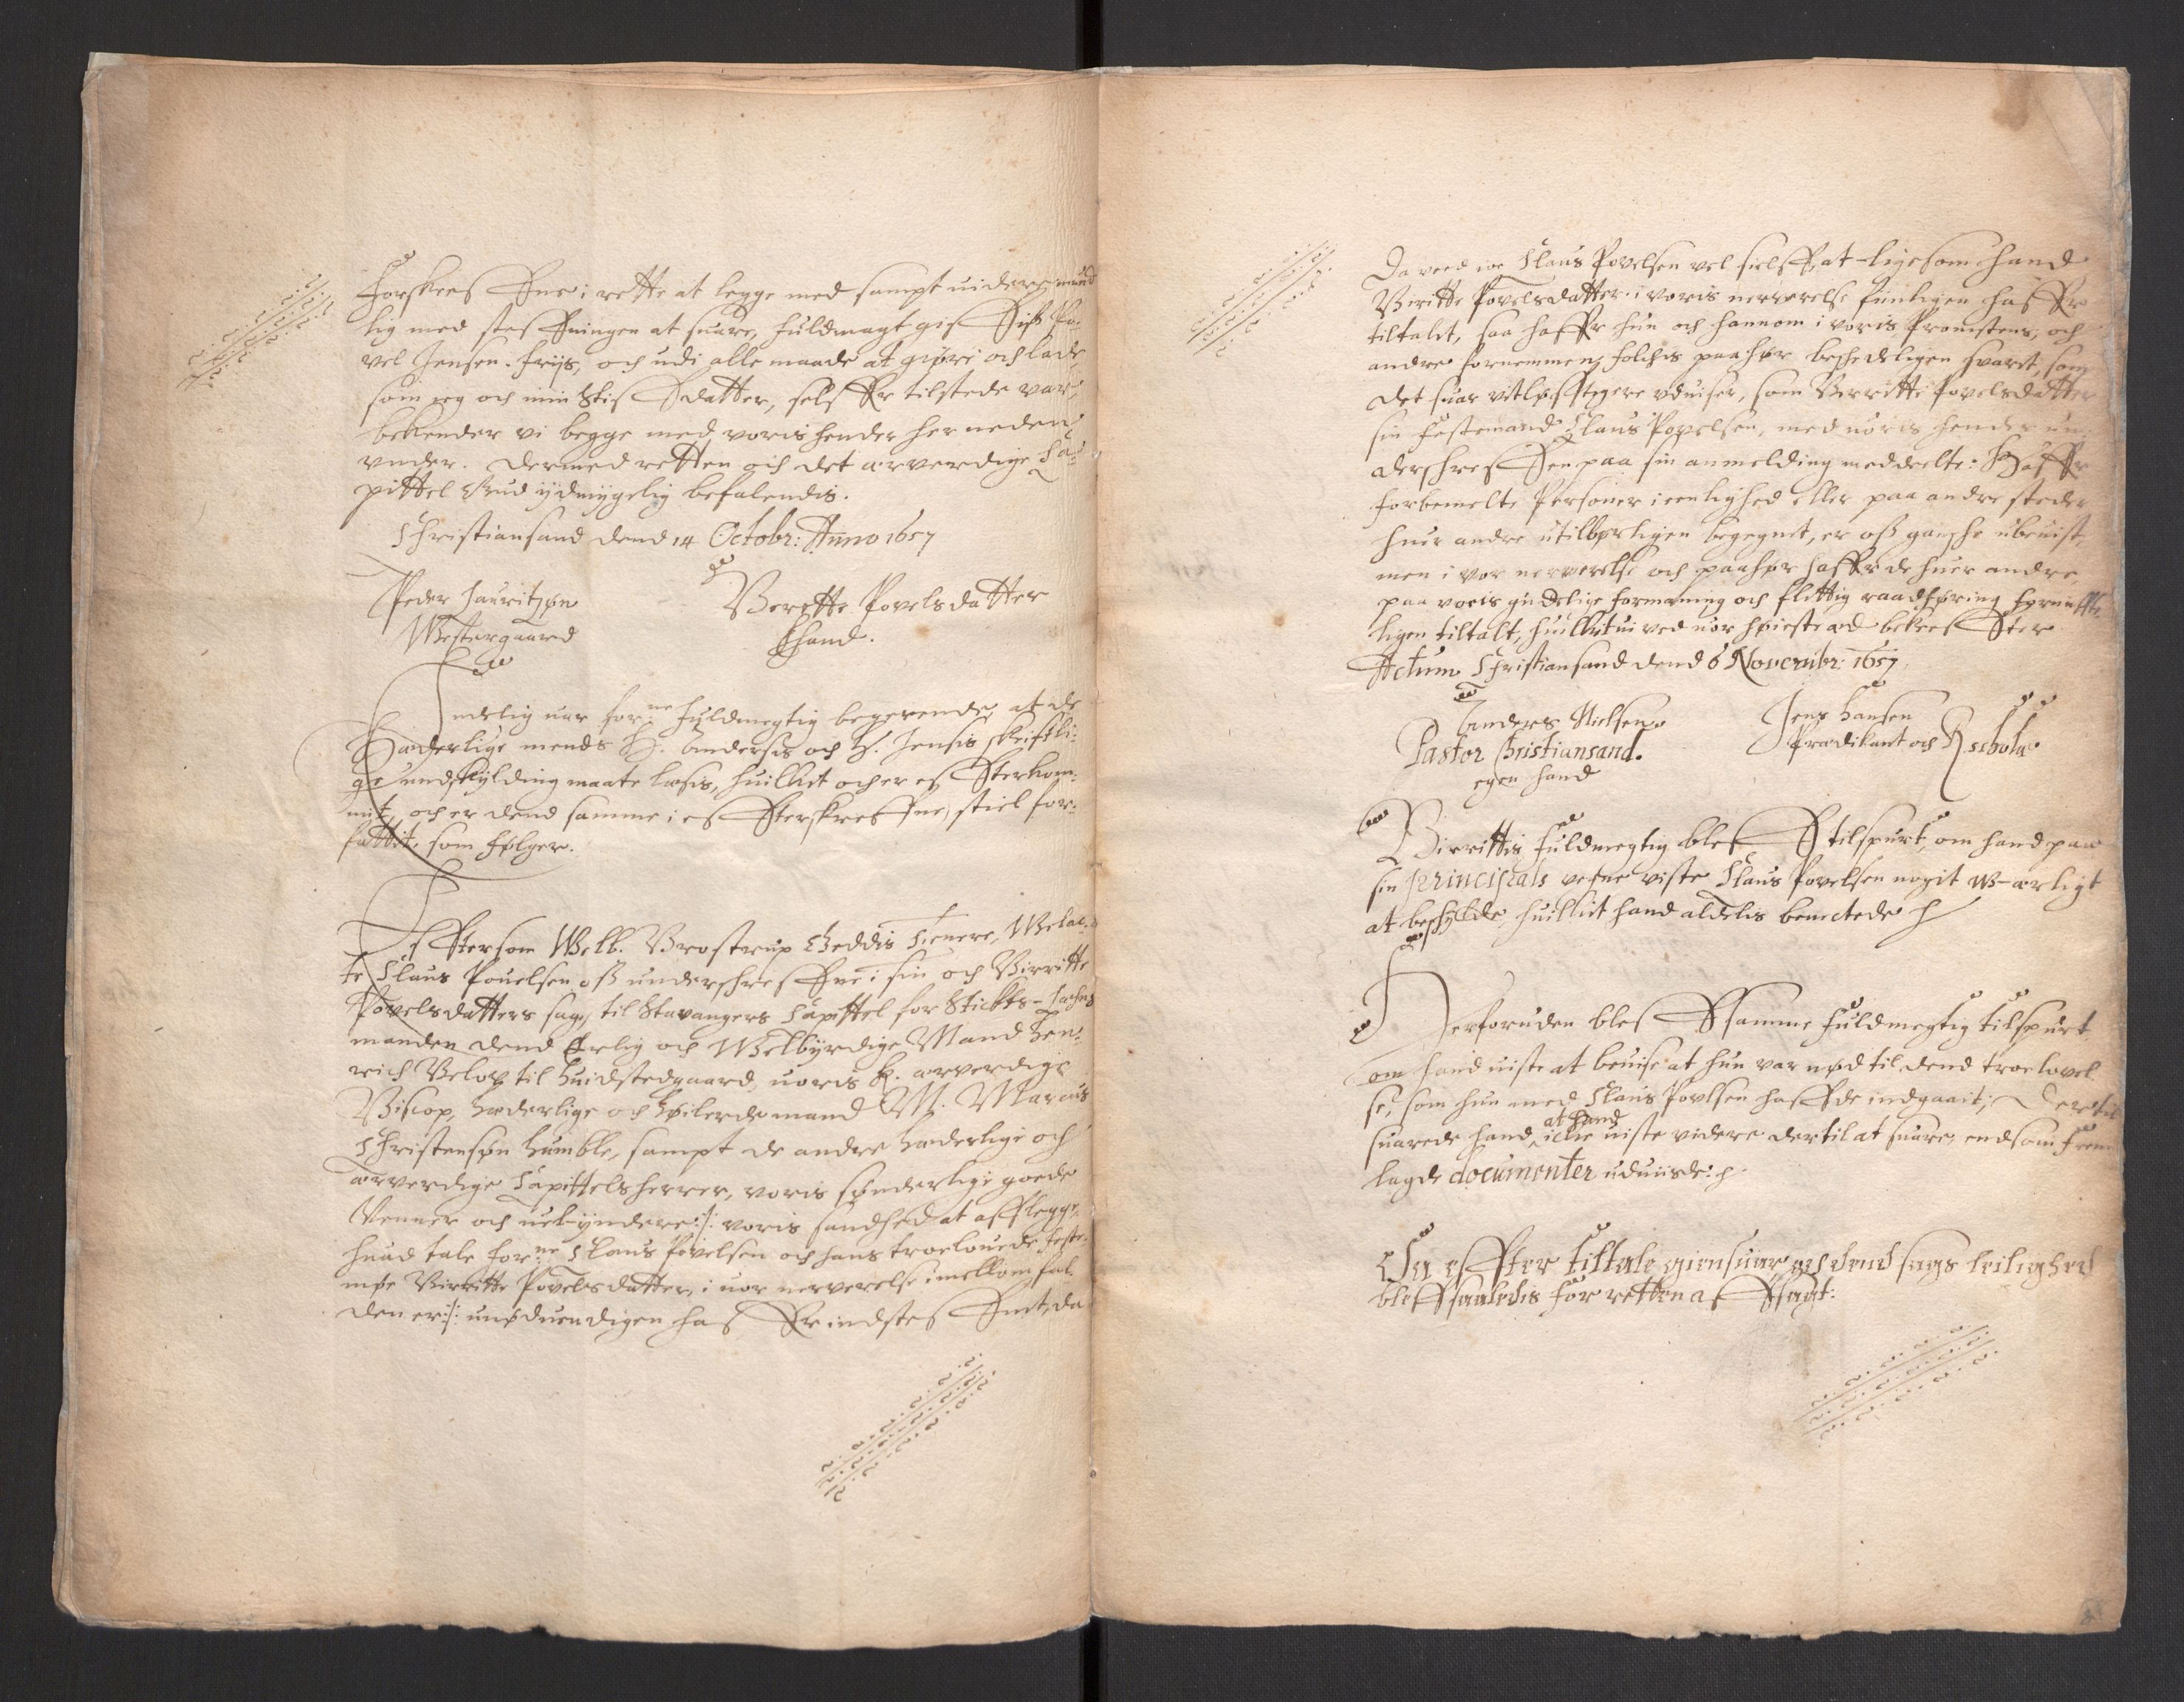 forskreffne i rette at legge med sampt uidere mund¬
lig med steffningen at suare, fuldmagt giff Siff Po¬
vel Jensen Friis, och udi alle maade at giøre och lade,
som ieg och min Stiffdatter, selffr tilstede var,
bekender vi begge med voris hender her neden
vnder. Dermed retten och det ærverdige Ca¬
pittel Gud ydmygelig befalendis.
Christiansand dend 14 Octobr: Anno 1657
Peder Lauritzøn Westergaard
Berette Povelsdatter
Ehand.
Endelig uar for:ne fuldmegtig begerende, at de
Hæderlige mends H. Andersis och H. Jensis skriftli¬
ge undskylding maate læsis, huilket och er effterkom¬
mit, och er dend samme i effterskreffne stiel for¬
fattit, som følger.
Efftersom Welb. Brostrup Geddis tienere, Welac¬
te Claus Pouelsen oss underschreffne i sin och Birritte
Povelsdatters sag, til Stavangers Capittel for Stickts-Lehns
manden dend Erlig och Welbyrdige Mand Hen¬
rich Below til Huidstedgaard, uoris k. ærverdige
Biscop, Hæderlige och Høilerde mand M. Marcus
Christensøn Humble, sampt de andre Hæderlige och
Ærverdige Capittels herrer, voris synderlige goede
Venner och uelyndere:/: voris sandhed at afflegge,
huad tale for:ne Claus Povelsen och hans troelouede feste¬
møe Birritte Povelsdatter, i uor nerverelse imellom fal¬
den er:/: unøduendigen haffr indsteffnt, da
Da veed ioe Claus Povelsen vel sielff, at ligesom hand
Biritte Povelsdatter i voris nerverelse haffr
tiltalt, saa haffr hun och hannom i voris Præsentens, och
andre fornemmen folchis paahør beschedeligen svaret, som
det suar vitløfftigere uduiser, som Birritte Povelsdatter
sin festemand Claus Povelsen, med uoris hender un¬
derschreffuen paa sin anmelding meddeelte: Haffr
forbemelte Personer i eenlighed eller paa andre steder
huer andre utilbørligen begegnet, er oss gansche ubeuist,
men i vor nerverelse och paahør haffr de huer andre,
paa voris gudelige formaning och flittig raadføring fornuffte¬
ligen tiltalt, huilket ui ved uor høieste æd bekreffter
Actum Christiansand dend 6 Novembr: 1657.
Anders Nielsen
Pastor Christiansand.
egen hand
Jens Hansen
Prædikant och R schola
Birrittis fuldmegtig bleff tilspurt, om hand paa
sin principals vegne viste Claus Povelsen nogit w-ærligt
at beschylde, huilkit hand aldelis benectede
Herforuden bleff samme fuldmegtig tilspurt,
om hand uiste at beuise at hun var nød til dend troelovel
se, som hun med Claus Povlsen haffde indgaait; Dertil
suarede hand, at hand icke uiste videre dertil at suare, end som frem
lagde documenter uduiisde:
Da effter tiltale giensuar och dend sags leilighed
bleff saaledis for retten affsagt: